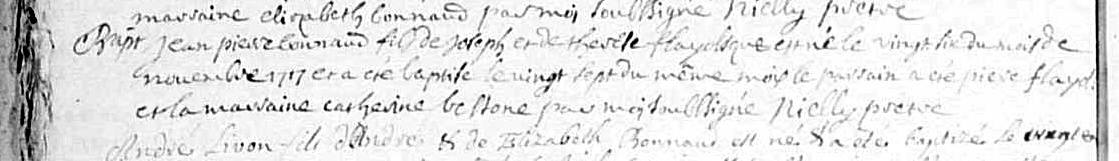 marraine elizabeth bonnaud par moi soubssigné Nielly pretre
Bapt Jean pierre bonnaud fils de Joseph et de therese flayosque est né le vingt six du mois de
novembre 1717 et a été baptisé le vingt sept du même mois le parrain a été pierre flayol
et la marraine catherine bestone par moi soubssigné Nielly pretre
André Livon fils d'André & de Elizabeth Bonnaud est né & a été baptizé le vingt